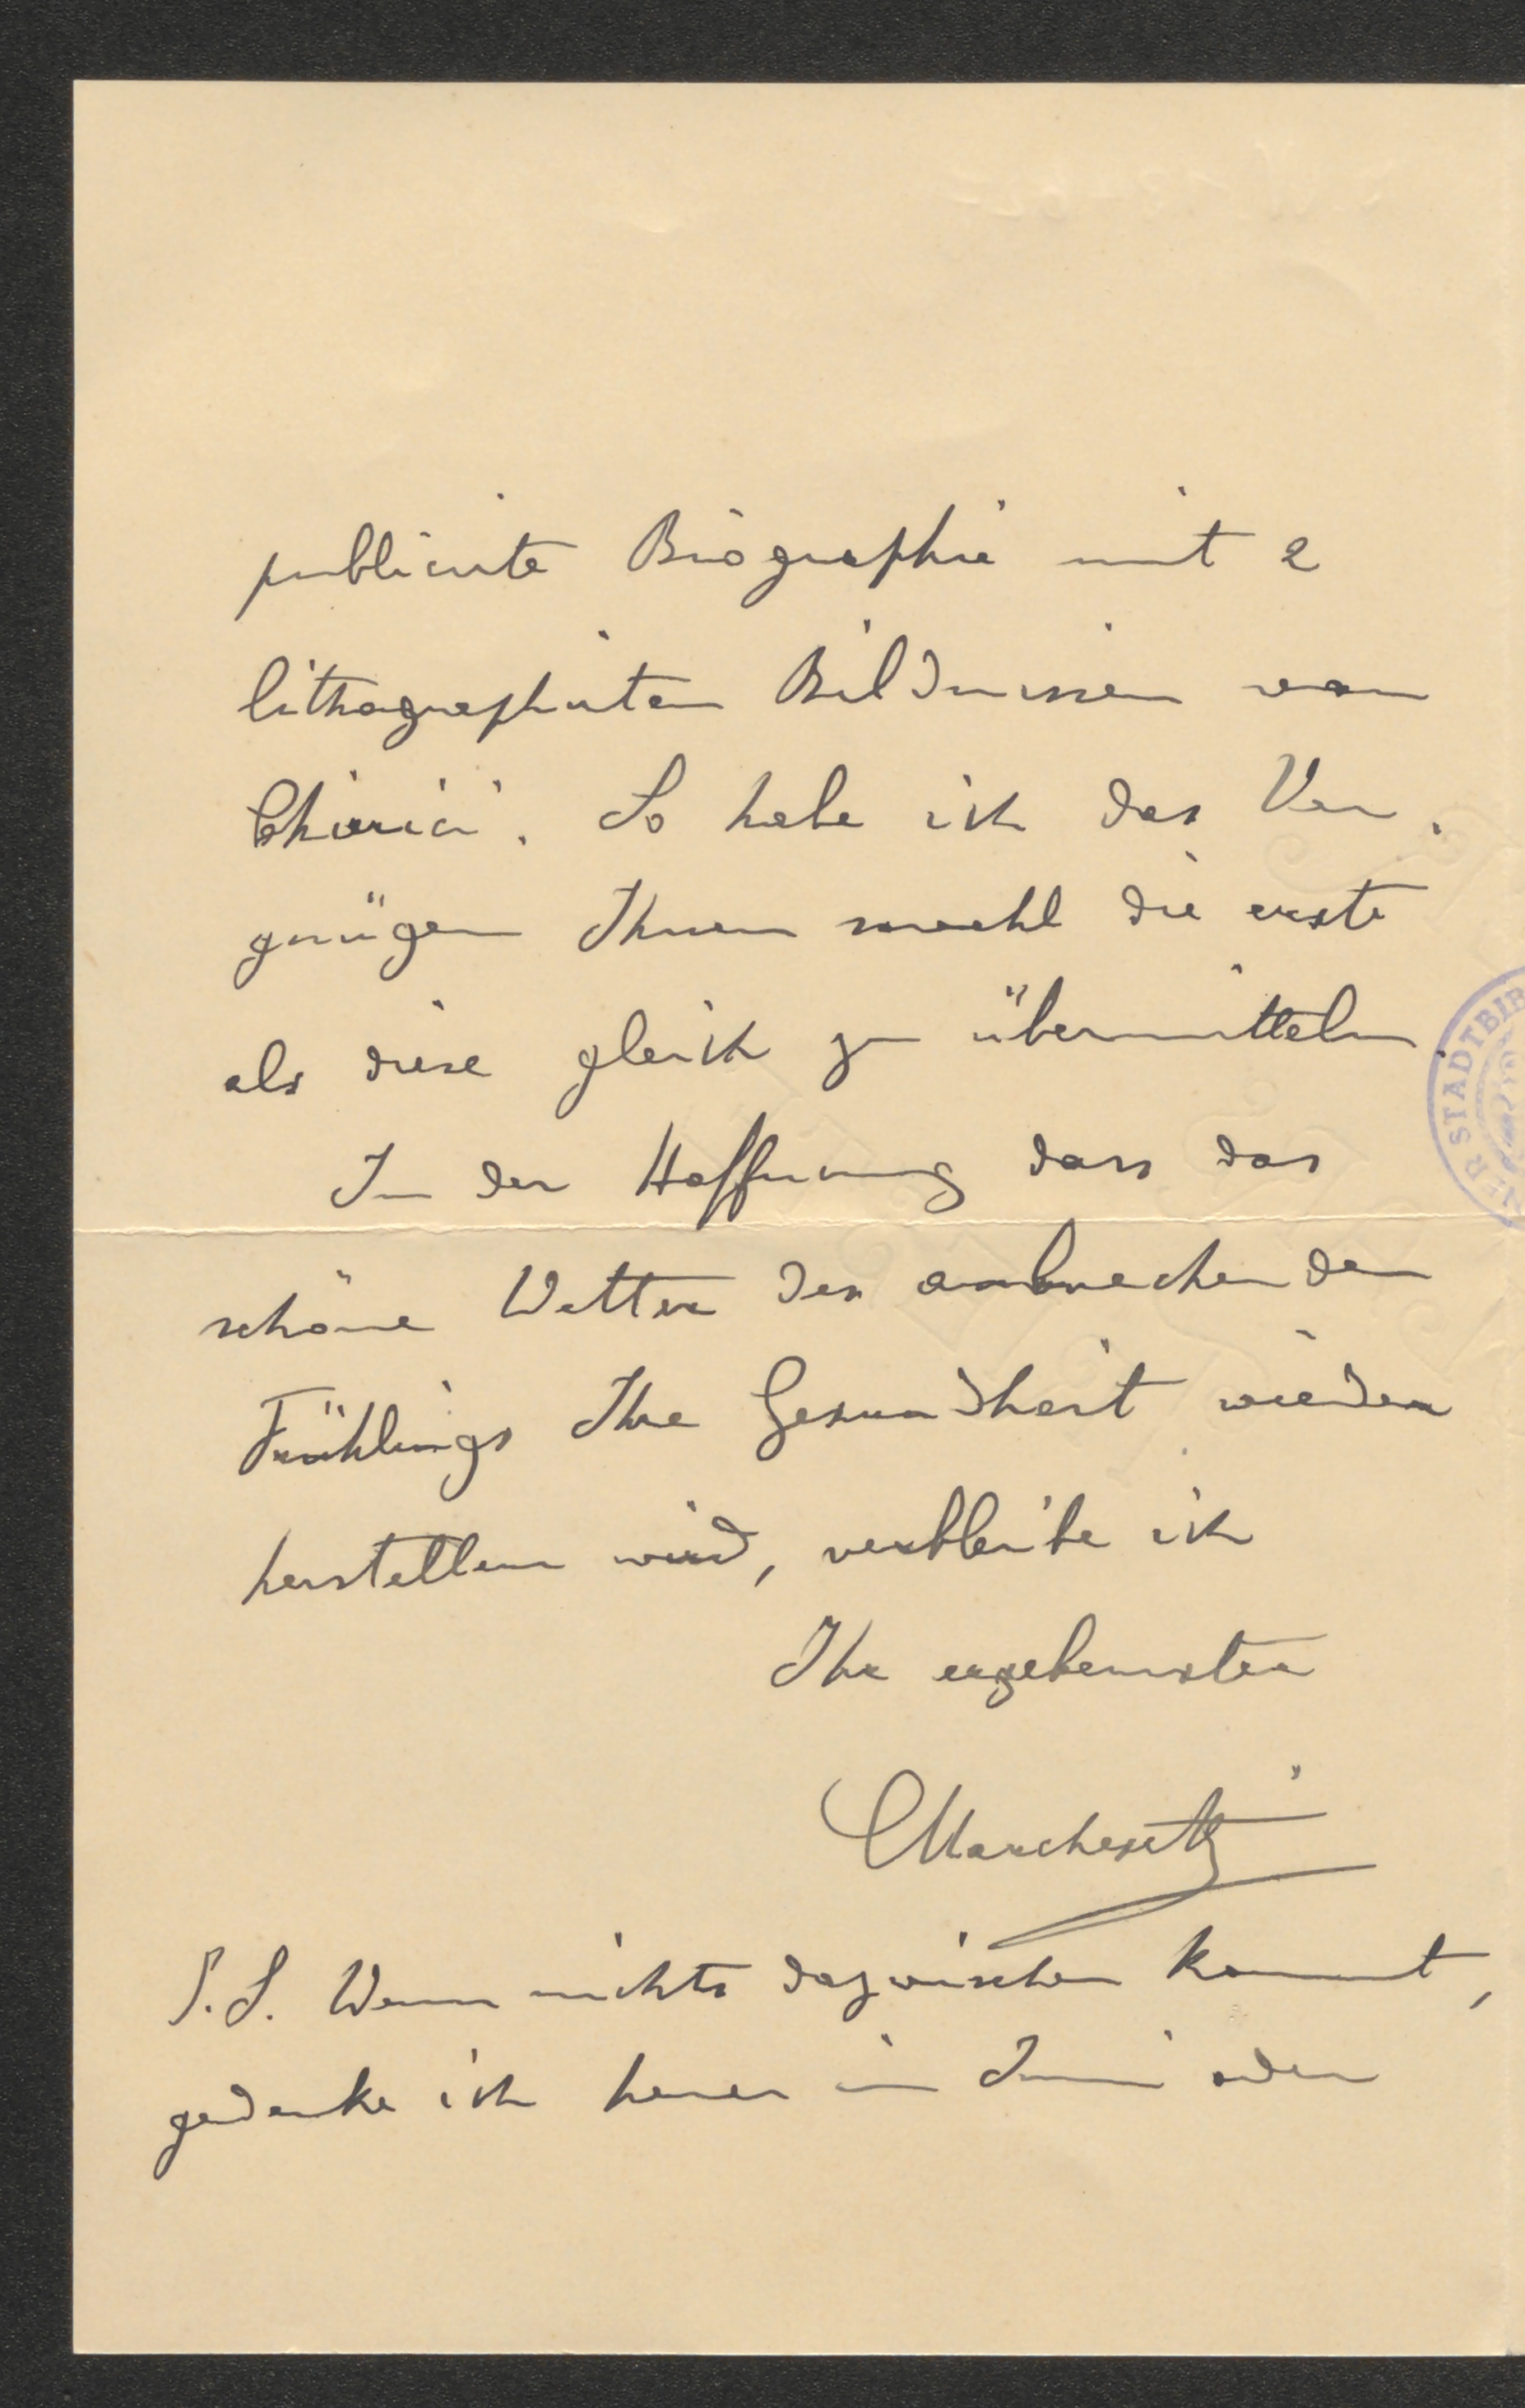 publicirte Biographie mit 2
lithographirten Bildnissen von
Chierici. So habe ich das Ver-
gnügen Ihnen sowohl die erste
als diese gleich zu übermitteln.
In der Hoffnung dass das
schöne Wetter des anbrechenden
Frühlings Ihre Gesundheit wieder
herstellen wird, verbleibe ich
Ihr ergebenster
CMarchesetti
P.S. Wenn nichts dazwischen kommt,
gedenke ich heuer im Juni oder
STADTBIB